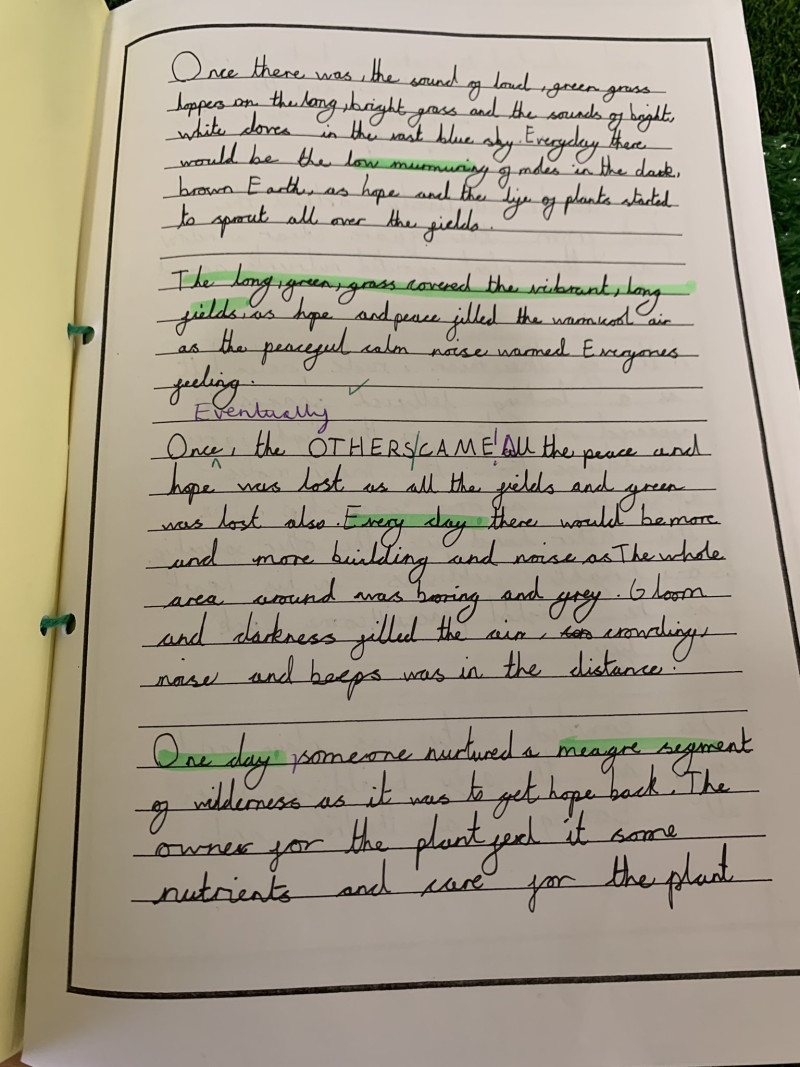 Once there was, the sound of loud, green grass
hoppers on the long, bright grass and the sounds of bright,
white doves in the vast blue sky. Everyday there
would be the low murmuring of moles in the dark,
brown Earth, as hope and the life of plants started
to sprout all over the fields.
The long, green, grass covered the vibrant, long
fields, as hope and peace filled the warm cool air
as the peaceful calm noise warmed Everyones
feeling.
Eventually
Once, the OTHERS CAME! All the peace and
hope was lost as all the fields and green
was lost also. Every day there would be more
and more building and noise as The whole
area around was boring and grey. Gloom
and darkness filled the air, crowding,
noise and beeps was in the distance.
One day, someone nurtured a meagre segment
of wilderness as it was to get hope back. The
owner for the plant feed it some
nutrients and care for the plant